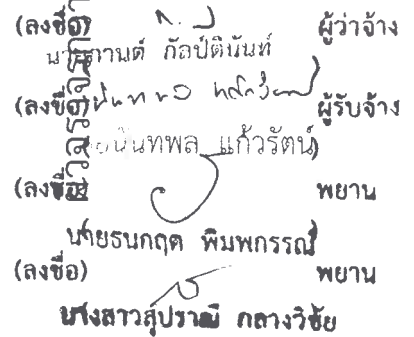 (ลงชื่อ) ผู้ว่าจ้าง
กัลป์ตินันท์
(ลงชื่อ) ผู้รับจ้าง
นันทพล แก้วรัตน์)
(ลงชื่อ) พยาน
นายธนกฤต พิมพกรรณ์
(ลงชื่อ) พยาน
นางสาวสุปราณี กลางวิชัย